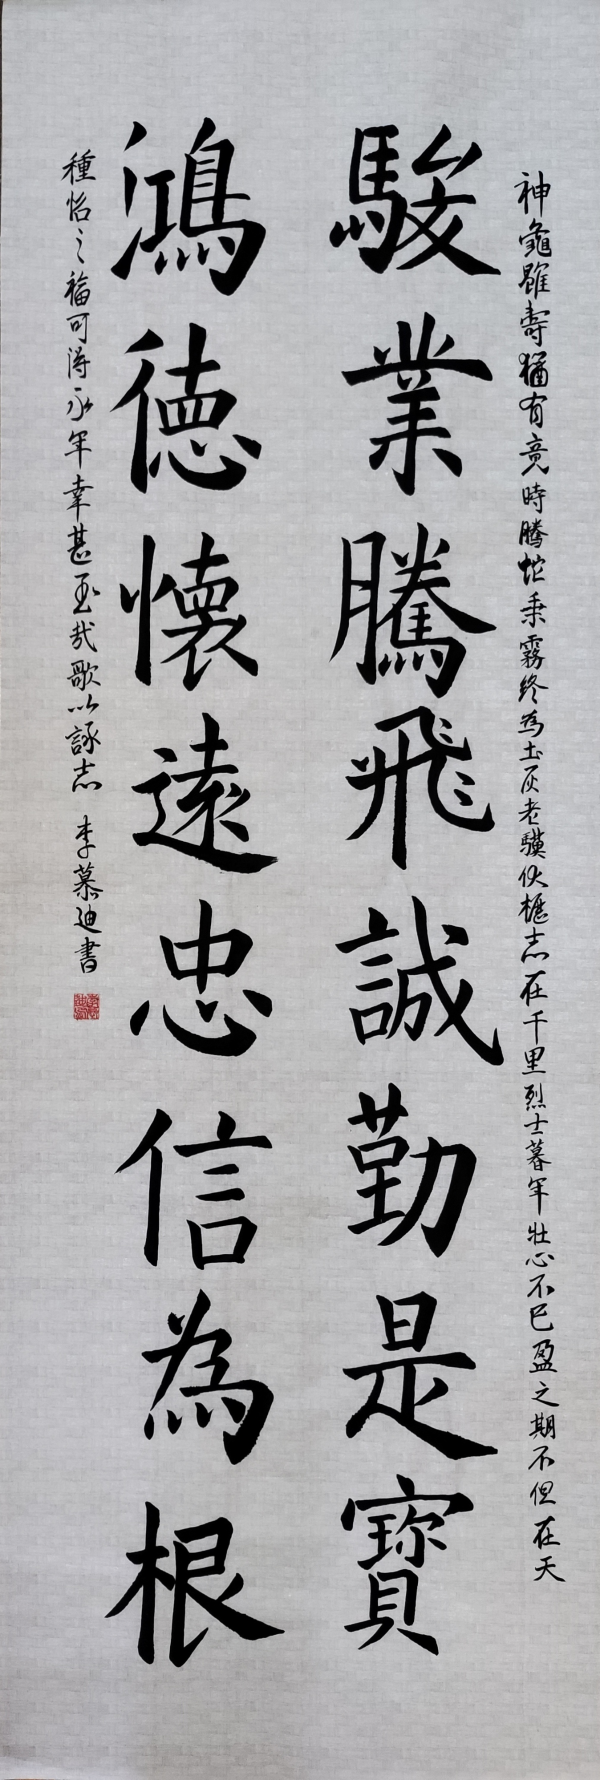 神龜雖壽猶有竟時騰蛇乘霧終為土灰老驥伏櫪志在千里烈士暮年壯心不已盈之期不但在天
駿業騰飛誠勤是寶
鴻德懷遠忠信為根
種怡之福可得永年幸甚至哉歌以詠志 李慕迪書